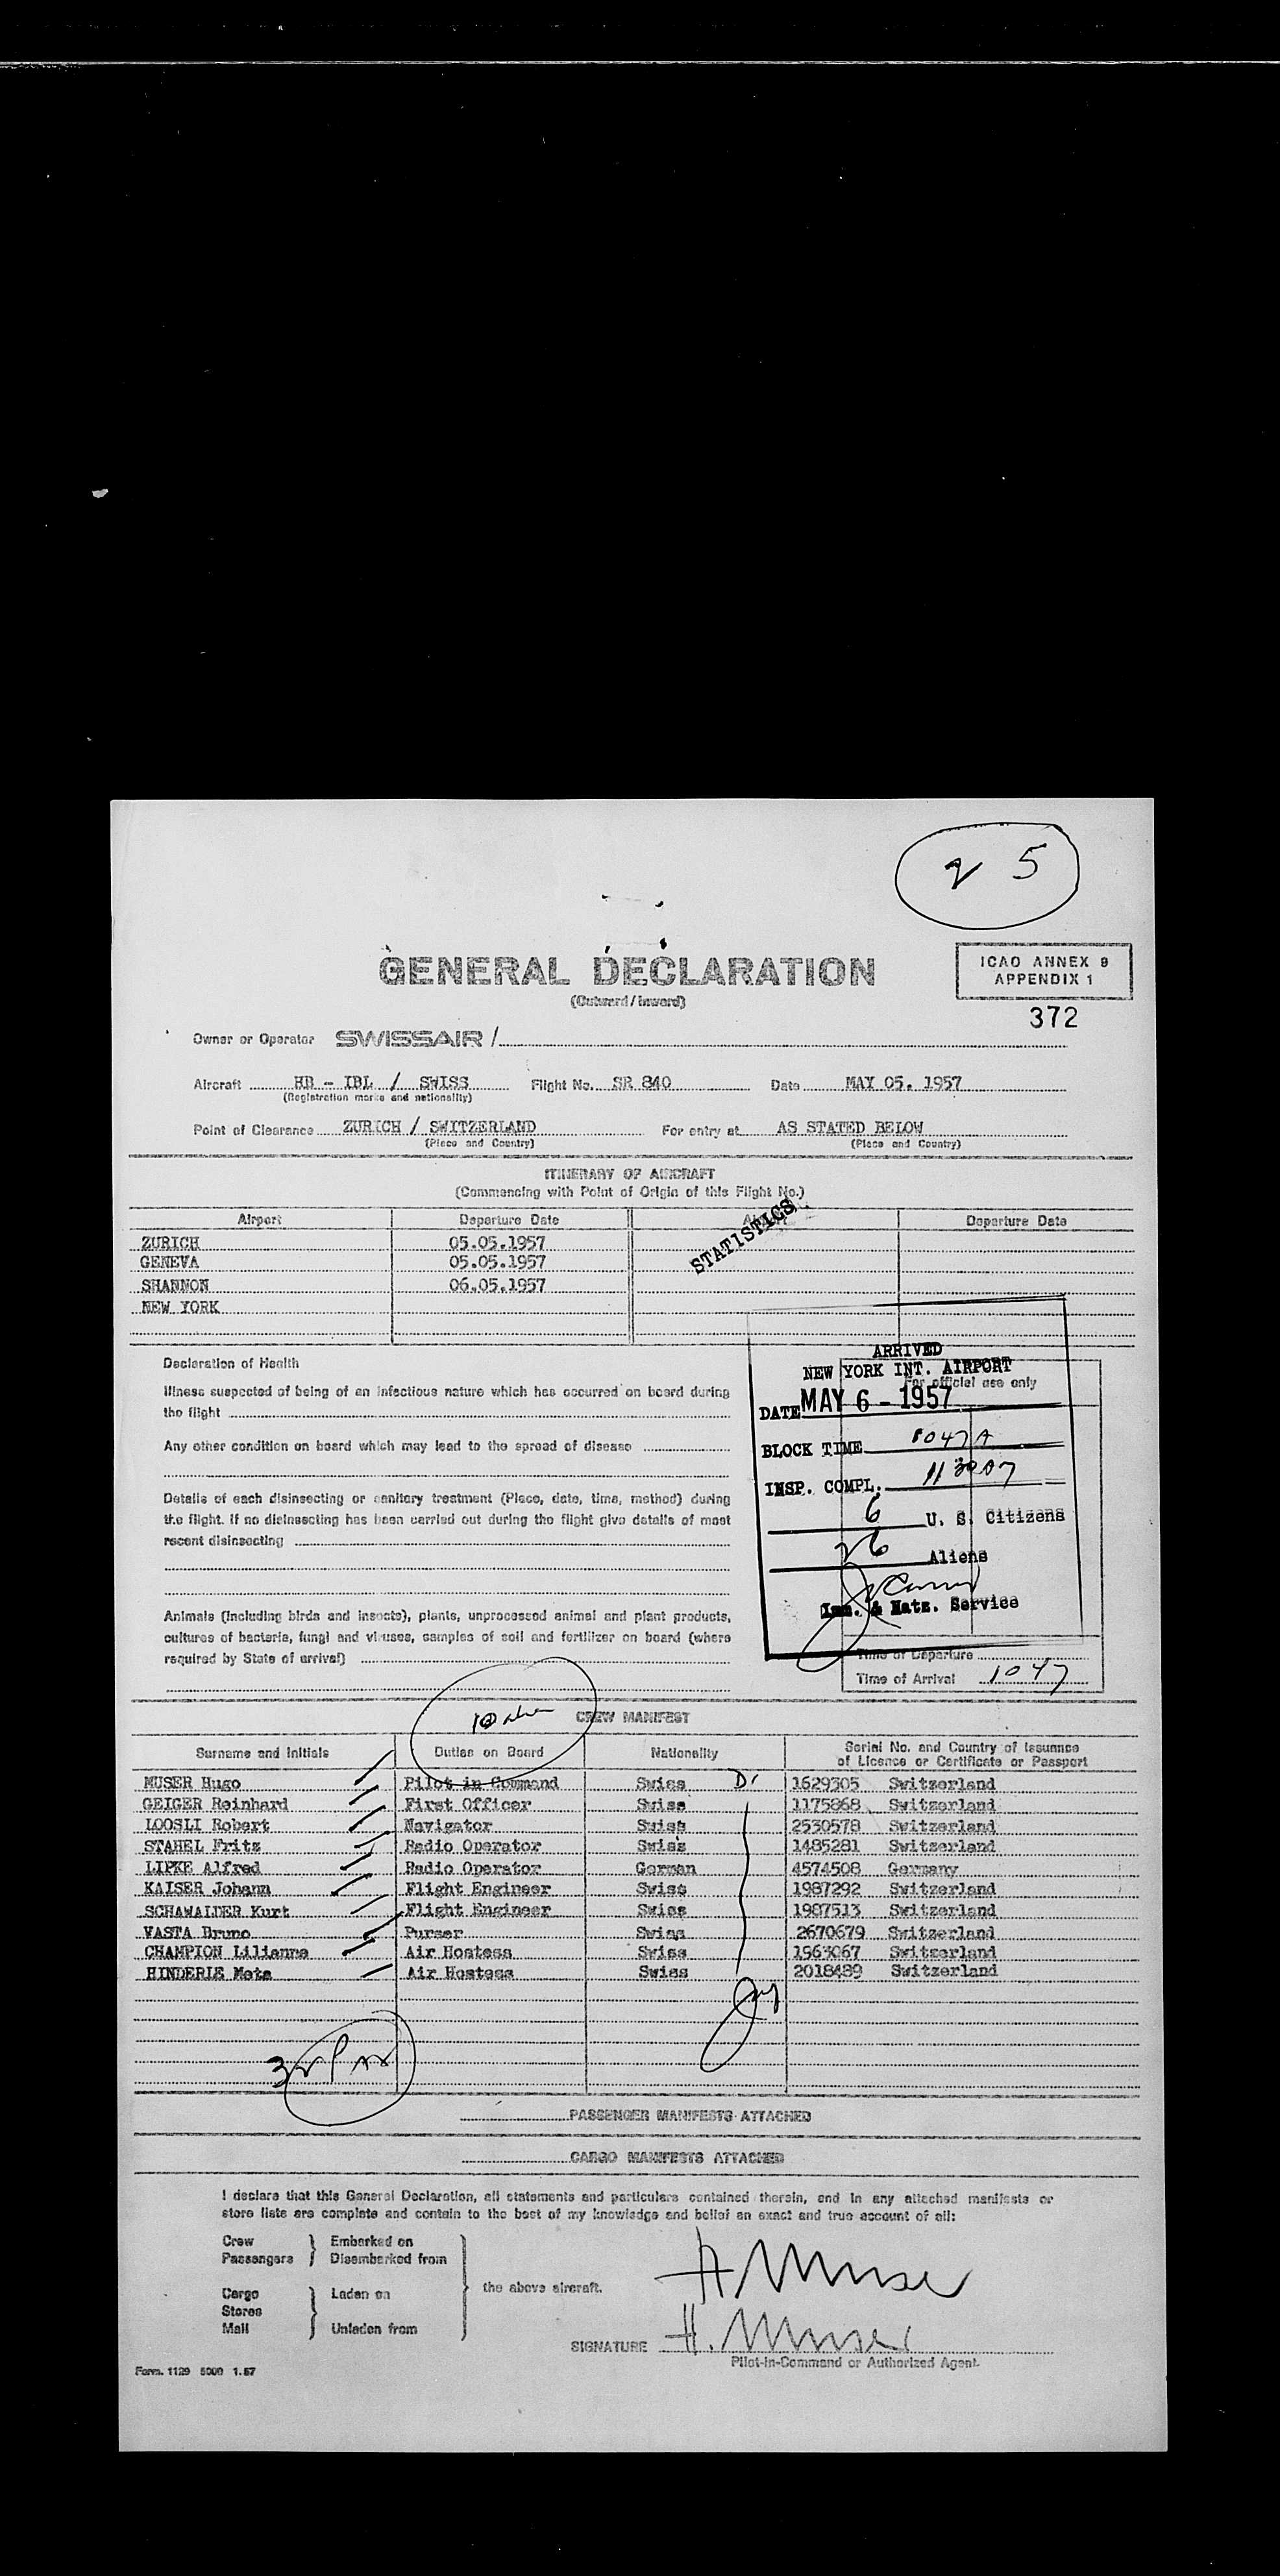 25
GENERAL DECLARATION
(Outward / Inward)
ICAO ANNEX 9
APPENDIX 1
372
Owner or Operator SWISSAIR /
Aircraft HB - IBL / SWISS Flight No. SR 840 Date MAY 05. 1957
(Registration marks and nationality)
Point of Clearance ZURICH / SWITZERLAND For entry at AS STATED BELOW
(Place and Country) (Place and Country)
ITINERARY OF AIRCRAFT
(Commencing with Point of Origin of this Flight No.)
Airport Departure Date Departure Date
STATISTICS
ZURICH 05.05.1957
GENEVA 05.05.1957
SHANNON 06.05.1957
NEW YORK
Declaration of Health
Illness suspected of being of an infectious nature which has occurred on board during
the flight
Any other condition on board which may lead to the spread of disease
Details of each disinsecting or sanitary treatment (Place, date, time, method) during
the flight. If no disinsecting has been carried out during the flight give details of most
recent disinsecting
Animals (including birds and insects), plants, unprocessed animal and plant products,
cultures of bacteria, fungi and viruses, samples of soil and fertilizer on board (where
required by State of arrival)
ARRIVED
NEW YORK INT. AIRPORT
For official use only
DATE MAY 6 - 1957
BLOCK TIME 1047A
INSP. COMPL.
6 U. S. Citizens
26 Aliens
Imm. & Natz. Service
Time of Departure
Time of Arrival 1047
CREW MANIFEST
Surname and Initials Duties on Board Nationality Serial No. and Country of Issuance
of Licence or Certificate or Passport
MUSER Hugo Pilot in Command Swiss 1629305 Switzerland
GEIGER Reinhard First Officer Swiss 1175868 Switzerland
LOOSLI Robert Navigator Swiss 2530578 Switzerland
STAHEL Fritz Radio Operator Swiss 1485281 Switzerland
LIPKE Alfred Radio Operator German 4574508 Germany
KAISER Johann Flight Engineer Swiss 1987292 Switzerland
SCHAWALDER Kurt Flight Engineer Swiss 1987513 Switzerland
VASTA Bruno Purser Swiss 2670679 Switzerland
CHAMPION Lilianne Air Hostess Swiss 1963067 Switzerland
HINDERLE Meta Air Hostess Swiss 2018489 Switzerland
PASSENGER MANIFESTS ATTACHED
CARGO MANIFESTS ATTACHED
I declare that this General Declaration, all statements and particulars contained therein, and in any attached manifests or
store lists are complete and contain to the best of my knowledge and belief an exact and true account of all:
Crew Embarked on
Passengers Disembarked from
Cargo Laden on the above aircraft.
Stores
Mail Unladen from
H Muser
SIGNATURE H. Muser
Pilot-in-Command or Authorized Agent.
Form. 1129 5000 1.57